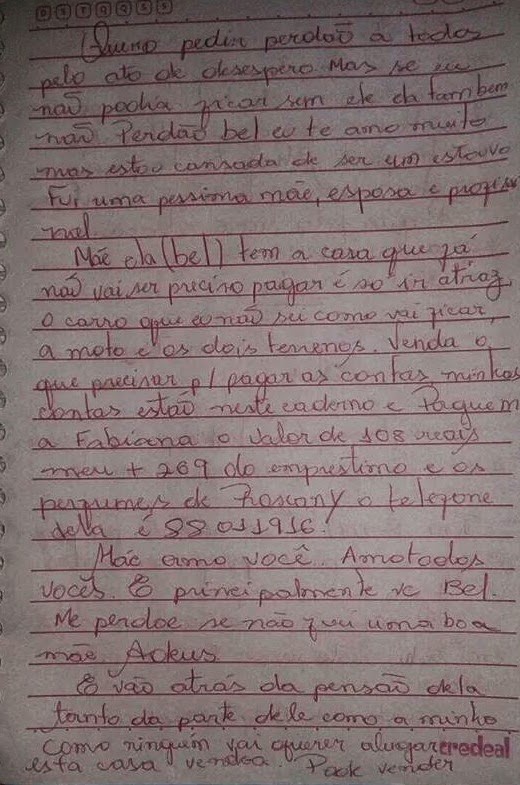 Quero pedir perdão a todos
pelo ato de desespero. Mas se eu
não podia ficar sem ele ela tambem
não. Perdão bel eu te amo muito
mas estou cansada de ser um estorvo
Fui uma pessima mãe, esposa e profissio
nal.
Mãe ela (bel) tem a casa que já
não vai ser preciso pagar é so ir atraz,
o carro que eu não sei como vai ficar,
a moto e os dois terrenos. Venda o
que precisar p/ pagar as contas minhas
contas estão neste caderno e Paguem
a Fabiana o valor de 108 reais
meu + 269 do emprestimo e os
perfumes de o telefone
dela é 88011916.
Mãe amo você. Amo todos
vocês. E principalmente vc Bel.
Me perdoe se não fui uma boa
mãe. Adeus.
E vão atrás da pensão dela
tanto da parte dele como a minha
como ninguém vai querer alugar credeal
esta casa venda. Pode vender